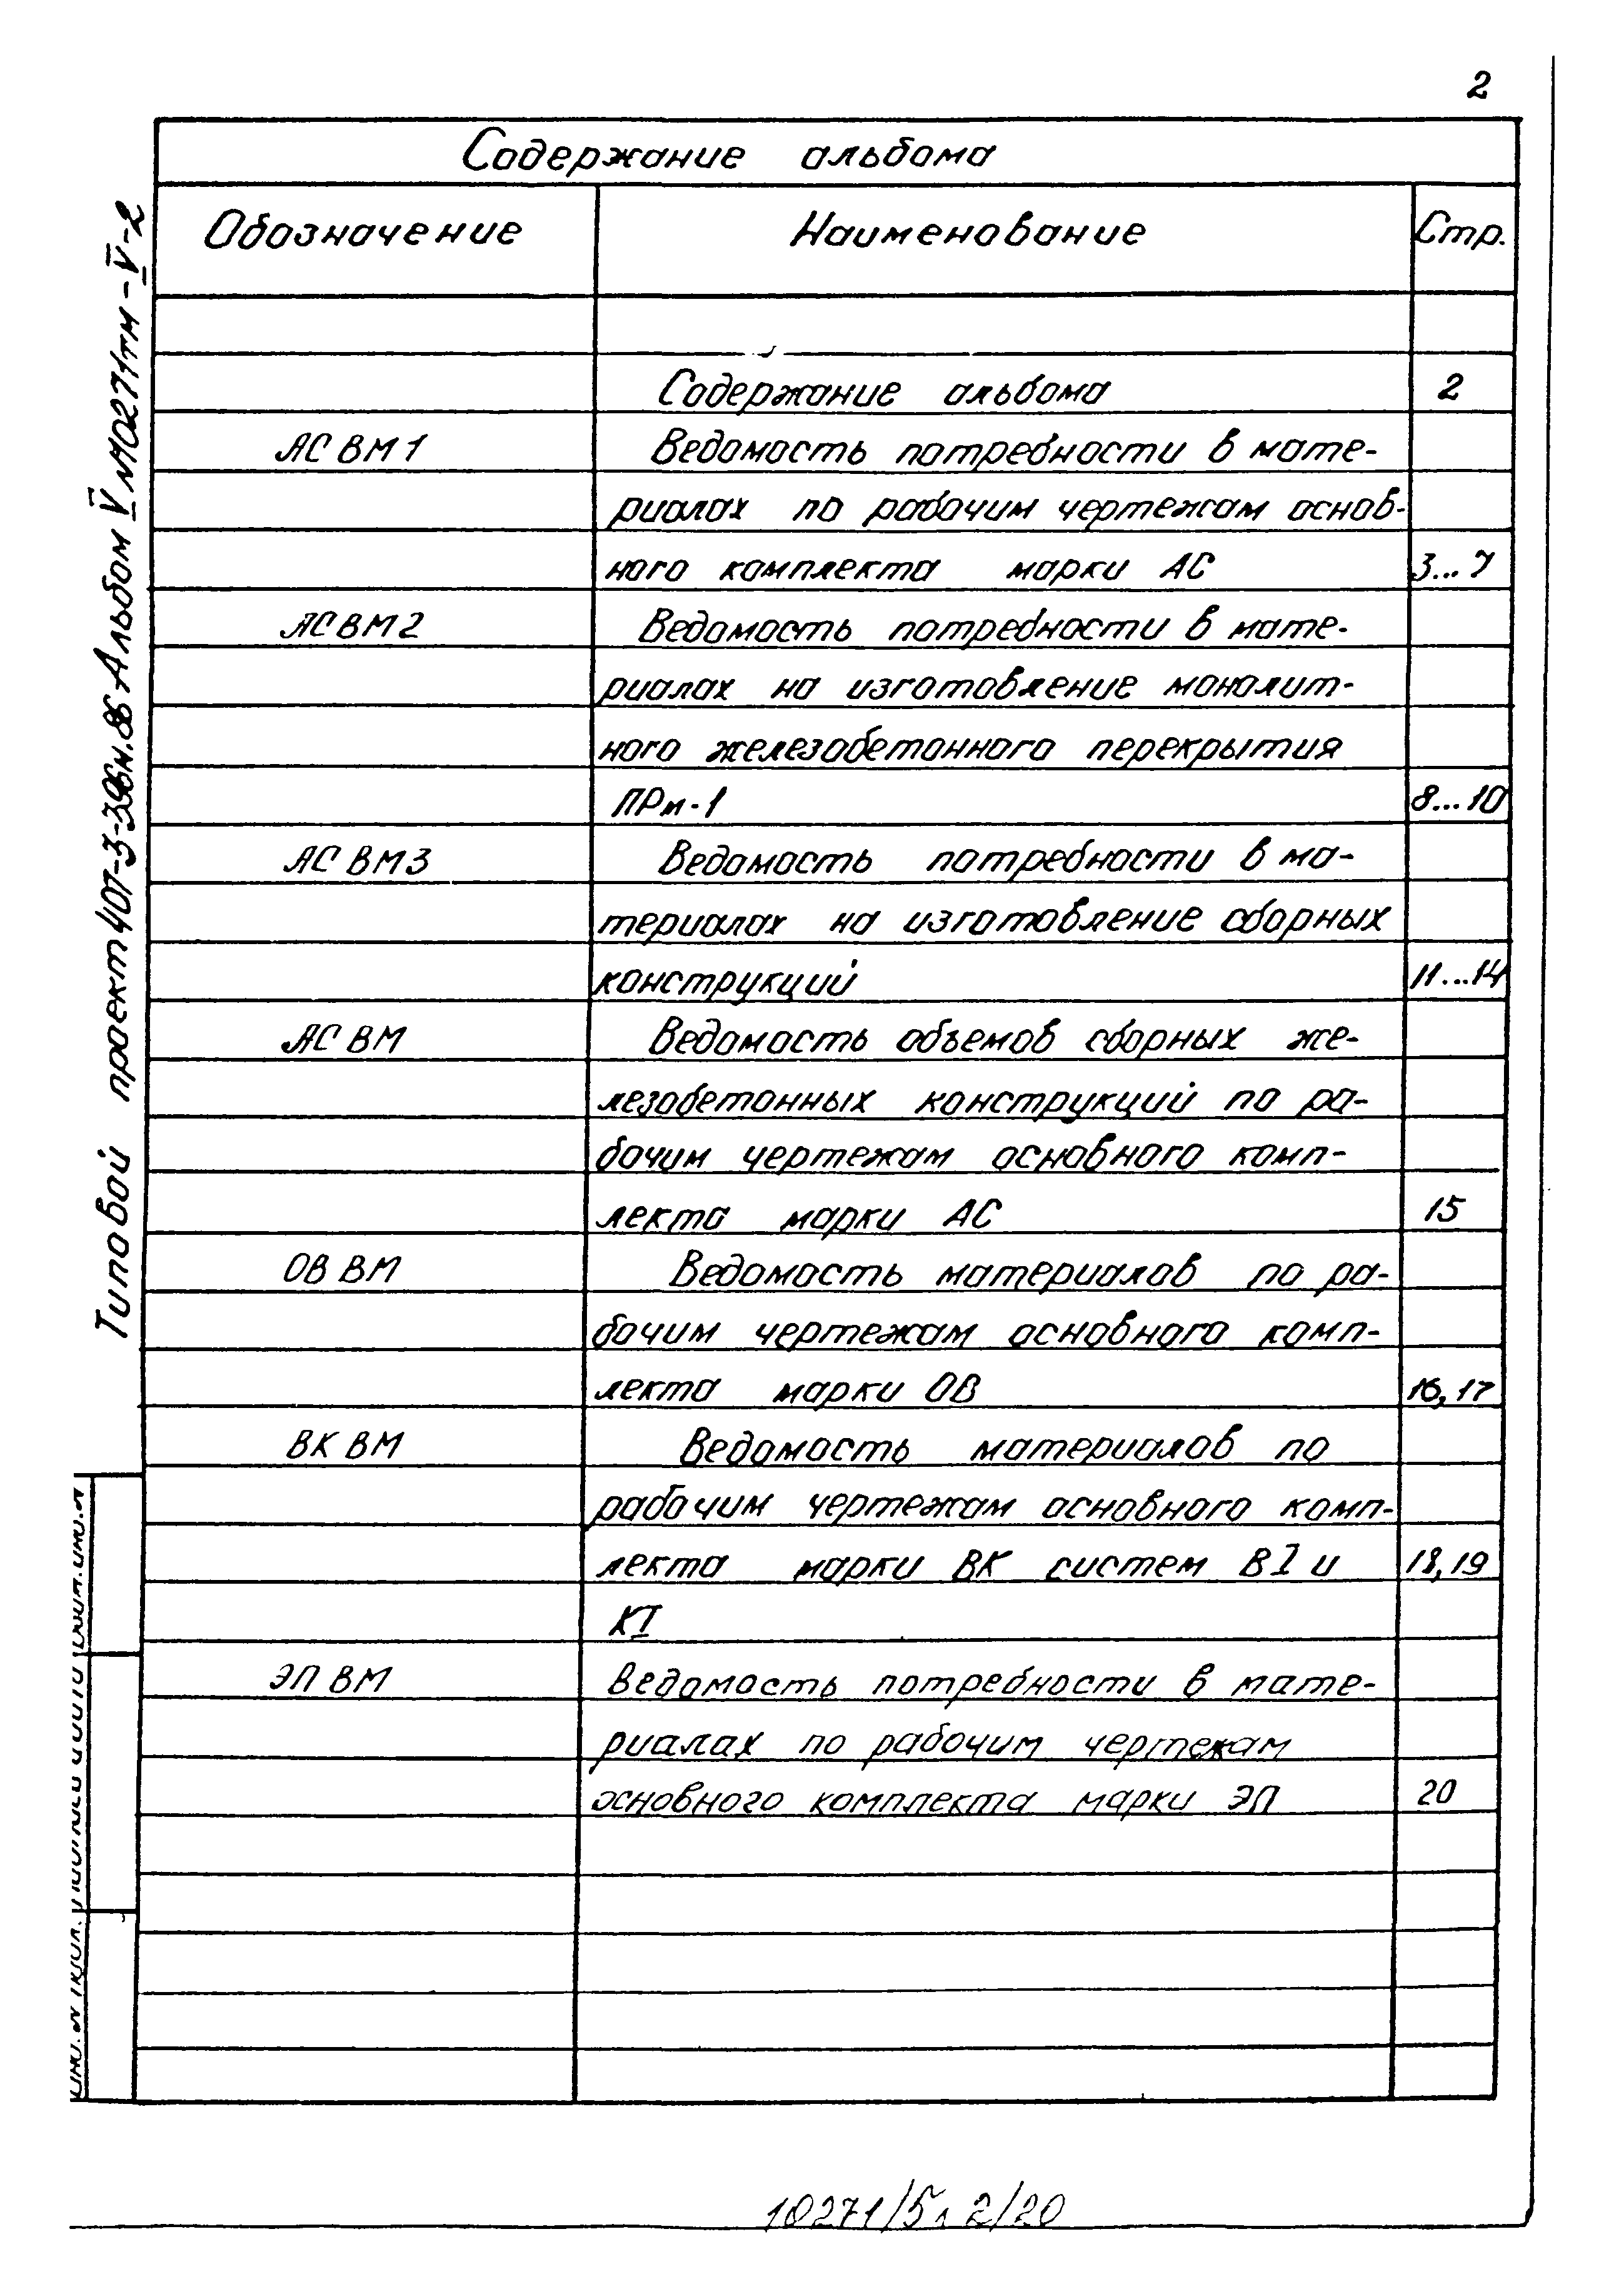 2
Содержание альбома
Обозначение Наименование Стр.
Содержание альбома 2
АС ВМ1 Ведомость потребности в мате-
риалах по рабочим чертежам основ-
ного комплекта марки АС 3...7
АС ВМ2 Ведомость потребности в мате-
риалах на изготовление монолит-
ного железобетонного перекрытия
ПРм-1 8...10
АС ВМ3 Ведомость потребности в ма-
териалах на изготовление сборных
конструкций 11...14
АС ВМ Ведомость объемов сборных же-
лезобетонных конструкций по ра-
бочим чертежам основного комп-
лекта марки АС 15
ОВ ВМ Ведомость материалов по ра-
бочим чертежам основного комп-
лекта марки ОВ 16,17
ВК ВМ Ведомость материалов по
рабочим чертежам основного комп-
лекта марки ВК систем ВI и 18,19
КI
ЭП ВМ Ведомость потребности в мате-
риалах по рабочим чертежам
основного комплекта марки ЭП 20
Типовой проект 407-3-396м.86 Альбом V №10271тм-V-2
10271/5л 2/20